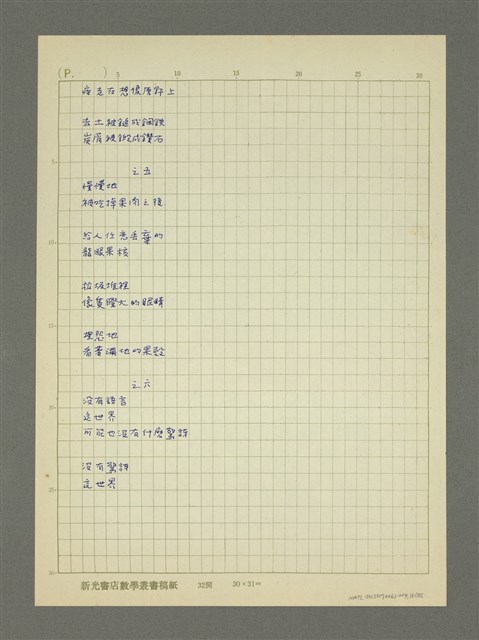 (P.      )
5 10 15 20 25 30
走在想像原野上
去土被鎚成鋼鉄
炭屑被鍛成鑽石
之五
慢慢地
被吃掉果肉之後
給人任意丟棄的
龍眼果核
垃圾堆裡
像隻瞪大的眼睛
埋怨地
看著滿地的果殼
之六
沒有語言
這世界
可能也沒有什麼驚訝
沒有驚訝
這世界
5
10
15
20
25
30
新光書店數學叢書稿紙 32開 30×31㎜